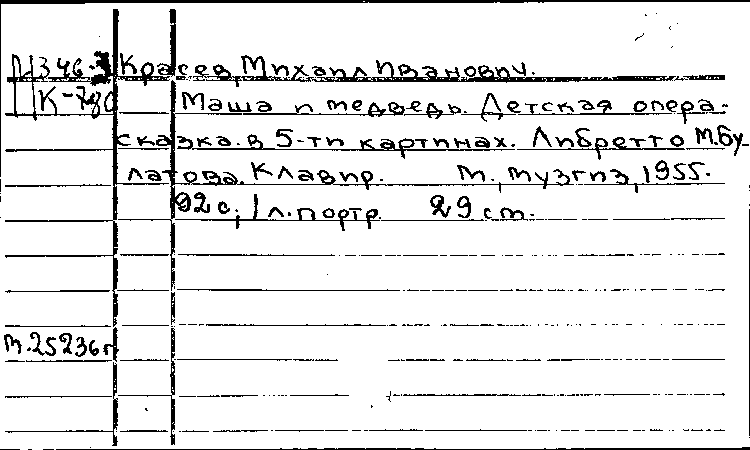 Красев, Михаил Иванович.
К-780 Маша и медведь. Детская опера-
сказка в 5-ти картинах. Либретто М.Бу-
латова. Клавир. М., Музгиз, 1955.
92 с., 1 л. портр. 29 см.